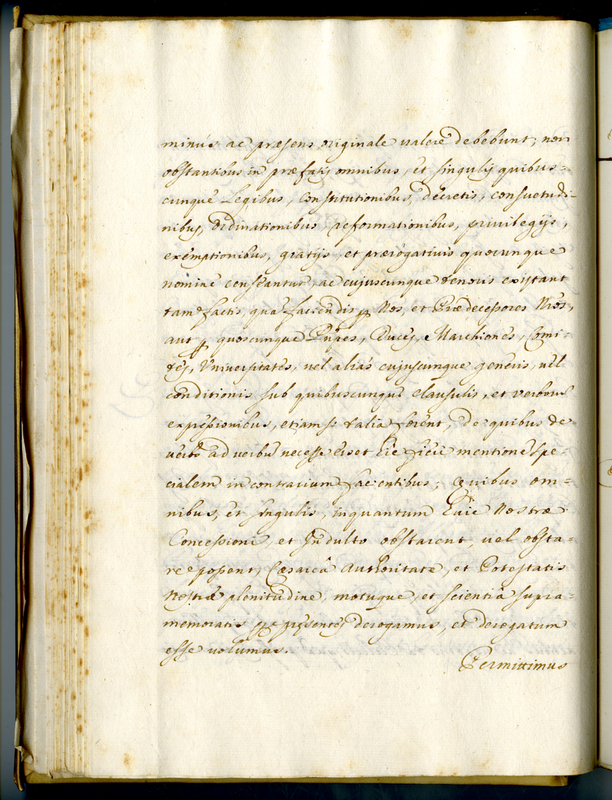 minus ac præsens originale valere debebunt, non
obstantibus in præfatis omnibus, et singulis quibus-
cunque Legibus, Constitutionibus, decretis, consuetudi-
nibus, Ordinationibus reformationibus, privilegijs,
exemptionibus, gratijs et prærogativis quocunque
nomine censeantur, ac cujuscunque tenoris existant
tam factis, quam faciendis p Nos, et Prædecessores Nros,
aut p quoscunque Duces, Marchiones, Comi-
tes, Universitates, vel alias cujuscunque generis, vel
conditionis sub quibuscunque clausulis, et verborum
expressionibus, etiam si talia forent, De quibus de
verbo ad verbum necesse esset hic fieri mentionem spe-
cialem in contrarium facientibus, Quibus om-
nibus, et singulis, inquantum huic Nostræ
Concessioni et Indulto obstarent, vel obsta-
re possent, Cæsareâ Authoritate, et Potestatis
Nostræ plenitudine, motuque, et scientiâ supra
memoratis p præsentes derogamus, et derogatum
esse volumus.
Permittimus